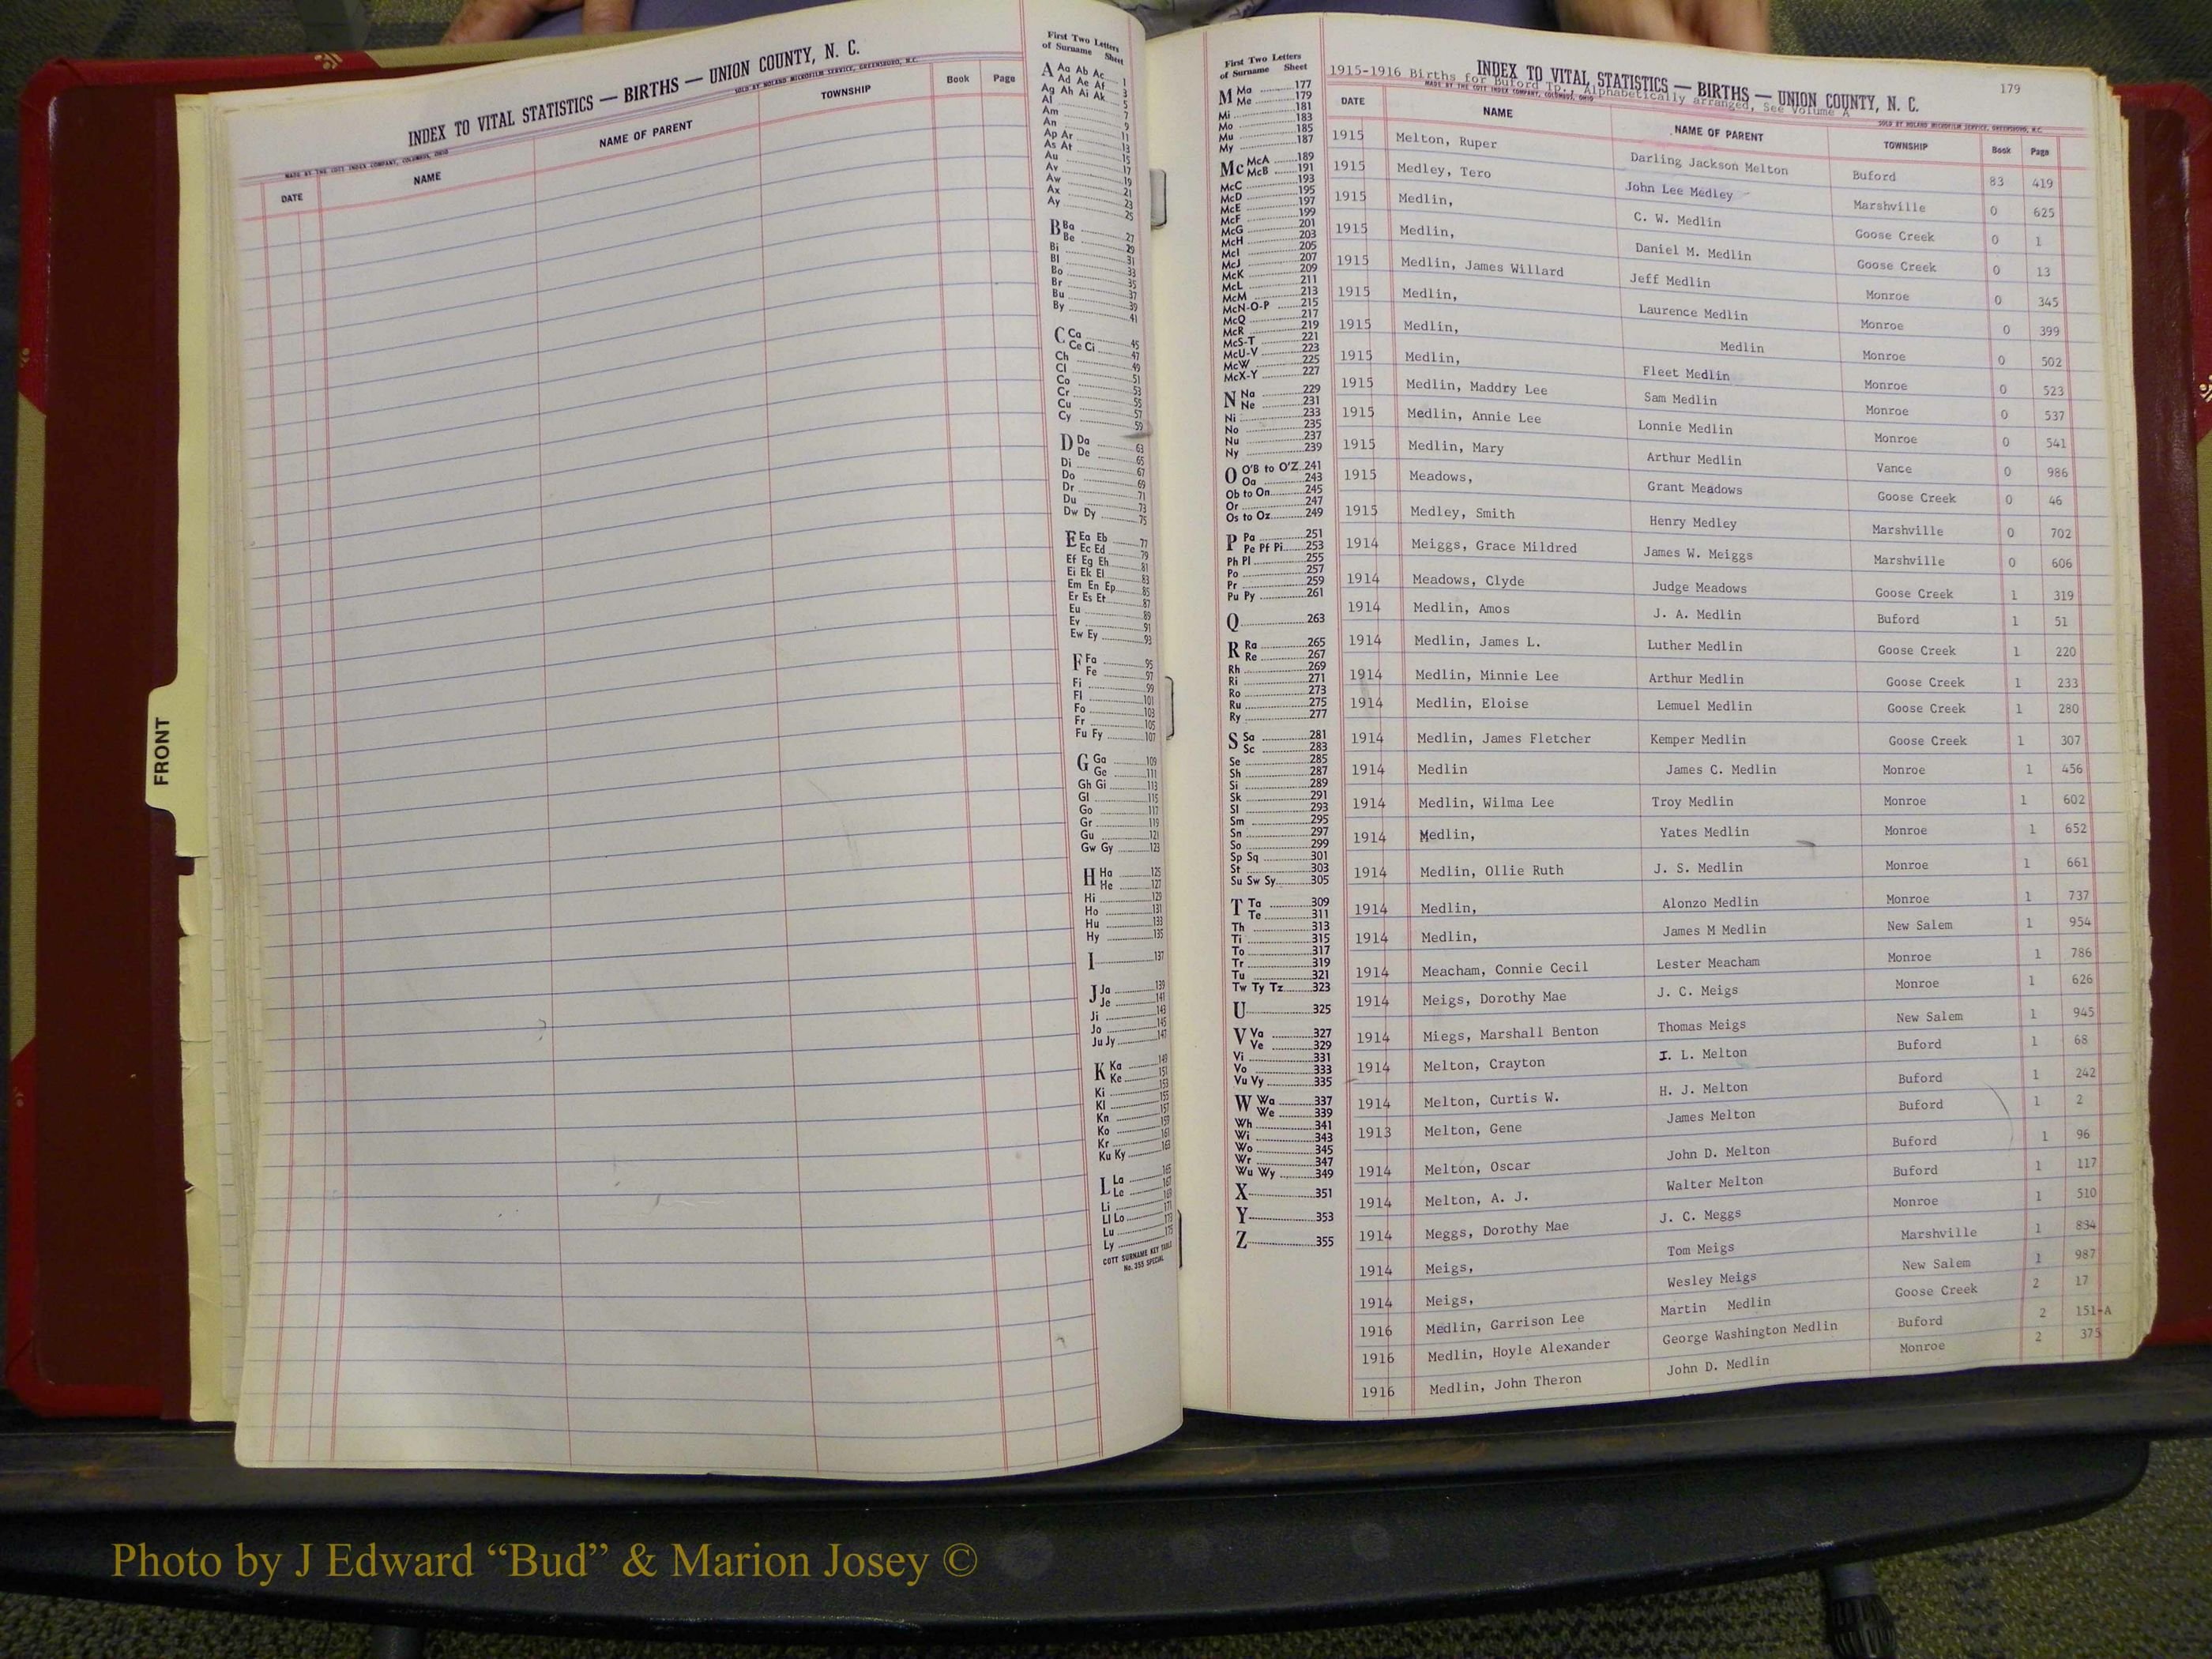 INDEX TO VITAL STATISTICS — BIRTHS — UNION COUNTY, N. C.
MADE BY THE COTT INDEX COMPANY, COLUMBUS, OHIO SOLD BY NOLAND MICROFILM SERVICE, GREENSBORO, N.C.
DATE NAME NAME OF PARENT TOWNSHIP Book Page
FRONT
First Two Letters
of Surname Sheet
A Aa Ab Ac 1
Ad Ae Af 3
Ag Ah Ai Ak 5
Al 7
Am 9
An 11
Ap Ar 13
As At 15
Au 17
Av 19
Aw 21
Ax 23
Ay 25
B Ba 27
Be 29
Bi 31
Bl 33
Bo 35
Br 37
Bu 39
By 41
C Ca 45
Ce Ci 47
Ch 49
Cl 51
Co 53
Cr 55
Cu 57
Cy 59
D Da 63
De 65
Di 67
Do 69
Dr 71
Du 73
Dw Dy 75
E Ea Eb 77
Ec Ed 79
Ef Eg Eh 81
Ei Ek El 83
Em En Ep 85
Er Es Et 87
Eu 89
Ev 91
Ew Ey 93
F Fa 95
Fe 97
Fi 99
Fl 101
Fo 103
Fr 105
Fu Fy 107
G Ga 109
Ge 111
Gh Gi 113
Gl 115
Go 117
Gr 119
Gu 121
Gw Gy 123
H Ha 125
He 127
Hi 129
Ho 131
Hu 133
Hy 135
I 137
J Ja 139
Je 141
Ji 143
Jo 145
Ju Jy 147
K Ka 149
Ke 151
Ki 153
Kl 155
Kn 157
Ko 159
Kr 161
Ku Ky 163
L La 165
Le 167
Li 169
Ll Lo 171
Lu 173
Ly 175
COTT SURNAME KEY TABLE
No. 355 SPECIAL
First Two Letters
of Surname Sheet
M Ma 177
Me 179
Mi 181
Mo 183
Mu 185
My 187
Mc McA 189
McB 191
McC 193
McD 195
McE 197
McF 199
McG 201
McH 203
McI 205
McJ 207
McK 209
McL 211
McM 213
McN-O-P 215
McQ 217
McR 219
McS-T 221
McU-V 223
McW 225
McX-Y 227
N Na 229
Ne 231
Ni 233
No 235
Nu 237
Ny 239
O O'B to O'Z 241
Oa 243
Ob to On 245
Or 247
Os to Oz 249
P Pa 251
Pe Pf Pi 253
Ph Pl 255
Po 257
Pr 259
Pu Py 261
Q 263
R Ra 265
Re 267
Rh 269
Ri 271
Ro 273
Ru 275
Ry 277
S Sa 281
Sc 283
Se 285
Sh 287
Si 289
Sk 291
Sl 293
Sm 295
Sn 297
So 299
Sp Sq 301
St 303
Su Sw Sy 305
T Ta 309
Te 311
Th 313
Ti 315
To 317
Tr 319
Tu 321
Tw Ty Tz 323
U 325
V Va 327
Ve 329
Vi 331
Vo 333
Vu Vy 335
W Wa 337
We 339
Wh 341
Wi 343
Wo 345
Wr 347
Wu Wy 349
X 351
Y 353
Z 355
INDEX TO VITAL STATISTICS — BIRTHS — UNION COUNTY, N. C. 179
1915-1916 Births for Buford Tp., Alphabetically arranged, See Volume A
MADE BY THE COTT INDEX COMPANY, COLUMBUS, OHIO SOLD BY NOLAND MICROFILM SERVICE, GREENSBORO, N.C.
DATE NAME NAME OF PARENT TOWNSHIP Book Page
1915 Melton, Ruper Darling Jackson Melton Buford 83 419
1915 Medley, Tero John Lee Medley Marshville 0 625
1915 Medlin, C. W. Medlin Goose Creek 0 1
1915 Medlin, Daniel M. Medlin Goose Creek 0 13
1915 Medlin, James Willard Jeff Medlin Monroe 0 345
1915 Medlin, Laurence Medlin Monroe 0 399
1915 Medlin, Medlin Monroe 0 502
1915 Medlin, Fleet Medlin Monroe 0 523
1915 Medlin, Maddry Lee Sam Medlin Monroe 0 537
1915 Medlin, Annie Lee Lonnie Medlin Monroe 0 541
1915 Medlin, Mary Arthur Medlin Vance 0 986
1915 Meadows, Grant Meadows Goose Creek 0 46
1915 Medley, Smith Henry Medley Marshville 0 702
1914 Meiggs, Grace Mildred James W. Meiggs Marshville 0 606
1914 Meadows, Clyde Judge Meadows Goose Creek 1 319
1914 Medlin, Amos J. A. Medlin Buford 1 51
1914 Medlin, James L. Luther Medlin Goose Creek 1 220
1914 Medlin, Minnie Lee Arthur Medlin Goose Creek 1 233
1914 Medlin, Eloise Lemuel Medlin Goose Creek 1 280
1914 Medlin, James Fletcher Kemper Medlin Goose Creek 1 307
1914 Medlin James C. Medlin Monroe 1 456
1914 Medlin, Wilma Lee Troy Medlin Monroe 1 602
1914 Medlin, Yates Medlin Monroe 1 652
1914 Medlin, Ollie Ruth J. S. Medlin Monroe 1 661
1914 Medlin, Alonzo Medlin Monroe 1 737
1914 Medlin, James M Medlin New Salem 1 954
1914 Meacham, Connie Cecil Lester Meacham Monroe 1 786
1914 Meigs, Dorothy Mae J. C. Meigs Monroe 1 626
1914 Miegs, Marshall Benton Thomas Meigs New Salem 1 945
1914 Melton, Crayton I. L. Melton Buford 1 68
1914 Melton, Curtis W. H. J. Melton Buford 1 242
1913 Melton, Gene James Melton Buford 1 2
1914 Melton, Oscar John D. Melton Buford 1 96
1914 Melton, A. J. Walter Melton Buford 1 117
1914 Meggs, Dorothy Mae J. C. Meggs Monroe 1 510
1914 Meigs, Tom Meigs Marshville 1 834
1914 Meigs, Wesley Meigs New Salem 1 987
1916 Medlin, Garrison Lee Martin Medlin Goose Creek 2 17
1916 Medlin, Hoyle Alexander George Washington Medlin Buford 2 151-A
1916 Medlin, John Theron John D. Medlin Monroe 2 375
Photo by J Edward “Bud” & Marion Josey ©